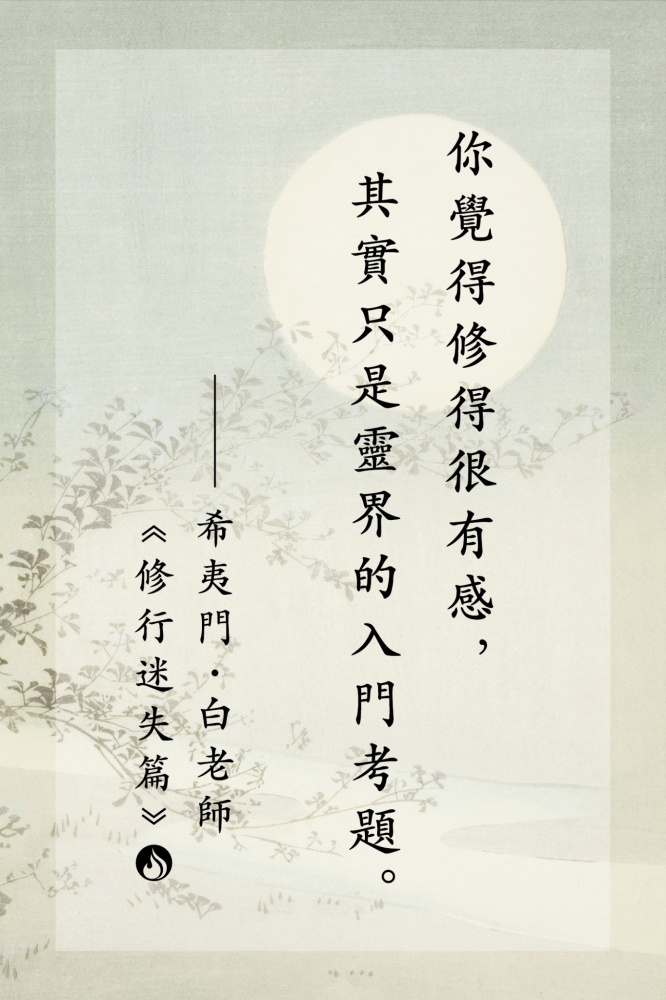 你覺得修得很有感，
其實只是靈界的入門考題。
——希夷門·白老師
《修行迷失篇》